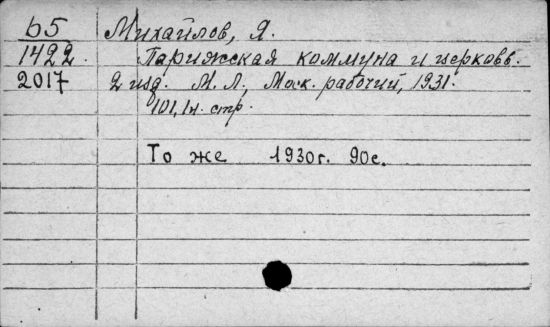 б5 Михайлов, Я.
1422. Парижская коммуна и церковь.
2017 2 изд. М. Л., Моск. рабочий, 1931.
101, 1 н. стр.
То же 1930г. 90с.